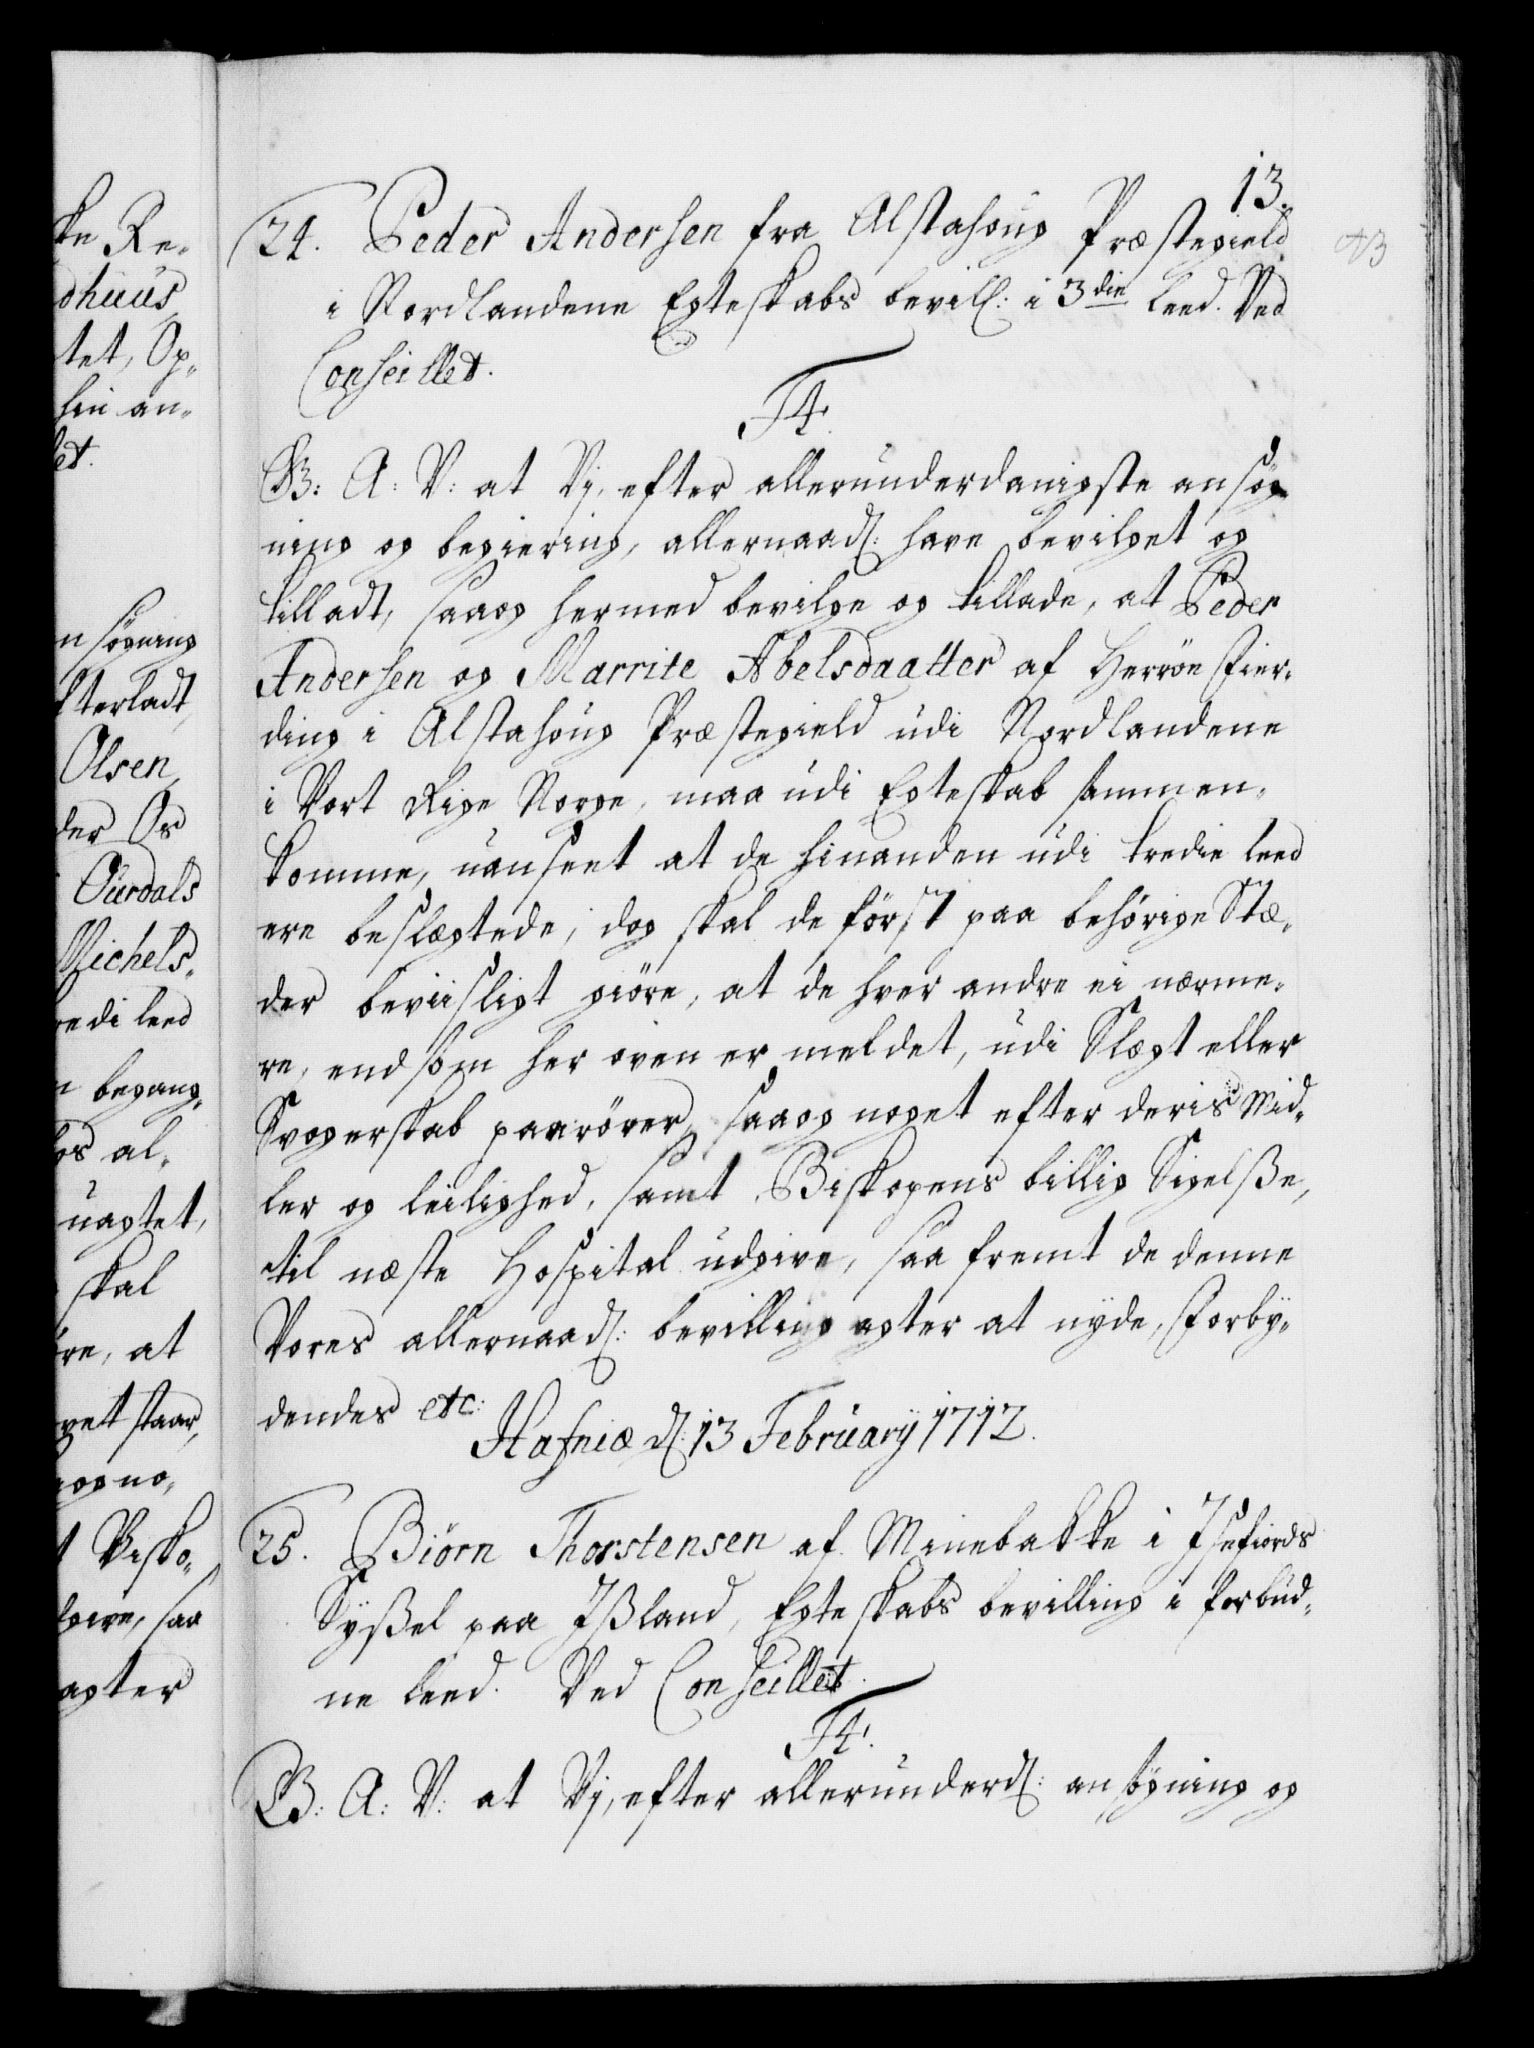 13.
24. Peder Andersen fra Alstahoug Præstegield
i Nordlandene Egteskabs bevill: i 3die leed. Ved
Conseillet.
F4.
G: A: V: at Vj, efter allerunderdanigste ansøg-
ning og begiering, allernaad: have bevilget og
tilladt, saaog hermed bevilge og tillade, at Peder
Andersen og Marrite Abelsdaatter af Herrøe Fier-
ding i Alstahoug Præstegield udi Nordlandene
i Vort Rige Norge, maa udi Egteskab sammen-
komme, uanseet at de hinanden udi tredie leed
ere beslægtede, dog skal de først paa behørige Stæ-
der beviisligt giøre, at de hver andre ei nærme-
re, end som her oven er meldet, udi Slægt eller
Svogerskab paarører, saaog noget efter deris Mid-
ler og leilighed, samt Biskopens billig Sigelße,
til næste Hospital udgive, saa fremt de denne
Vores allernaad: bevilling agter at nyde, Forby-
dendes etc:
Hafniæ d: 13 Februarij 1712.
25. Biørn Thorstensen af Minebakke i Isefiords
Syßel paa Ißland, Egteskabs bevilling i forbud-
ne leed. Ved Conseillet.
F4.
G: A: V: at Vj, efter allerunderd: ansøgning og
ke Re-
dhuus
tet, Op-
hin an-
let.
n søgning
fterladt
Olsen
der Os
Ourdals
Michels-
redi leed
n begang-
os al-
uagtet,
skal
re, at
vet staar,
aog no-
t Bisko-
give, saa
agter